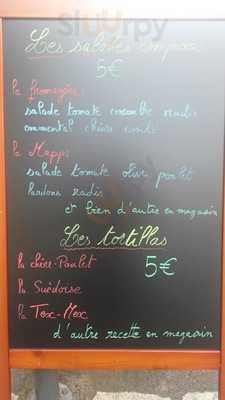 Sluurpy
Les salades
5€
la fromagère :
salade tomate concombre radis
emmental chèvre
la Mapps
salade tomate olive poulet
lardons radis
et bien d'autre en magasin
Les tortillas
la chèvre-Poulet 5€
la Suédoise
la Tex-Mex
d'autre recette en magasin